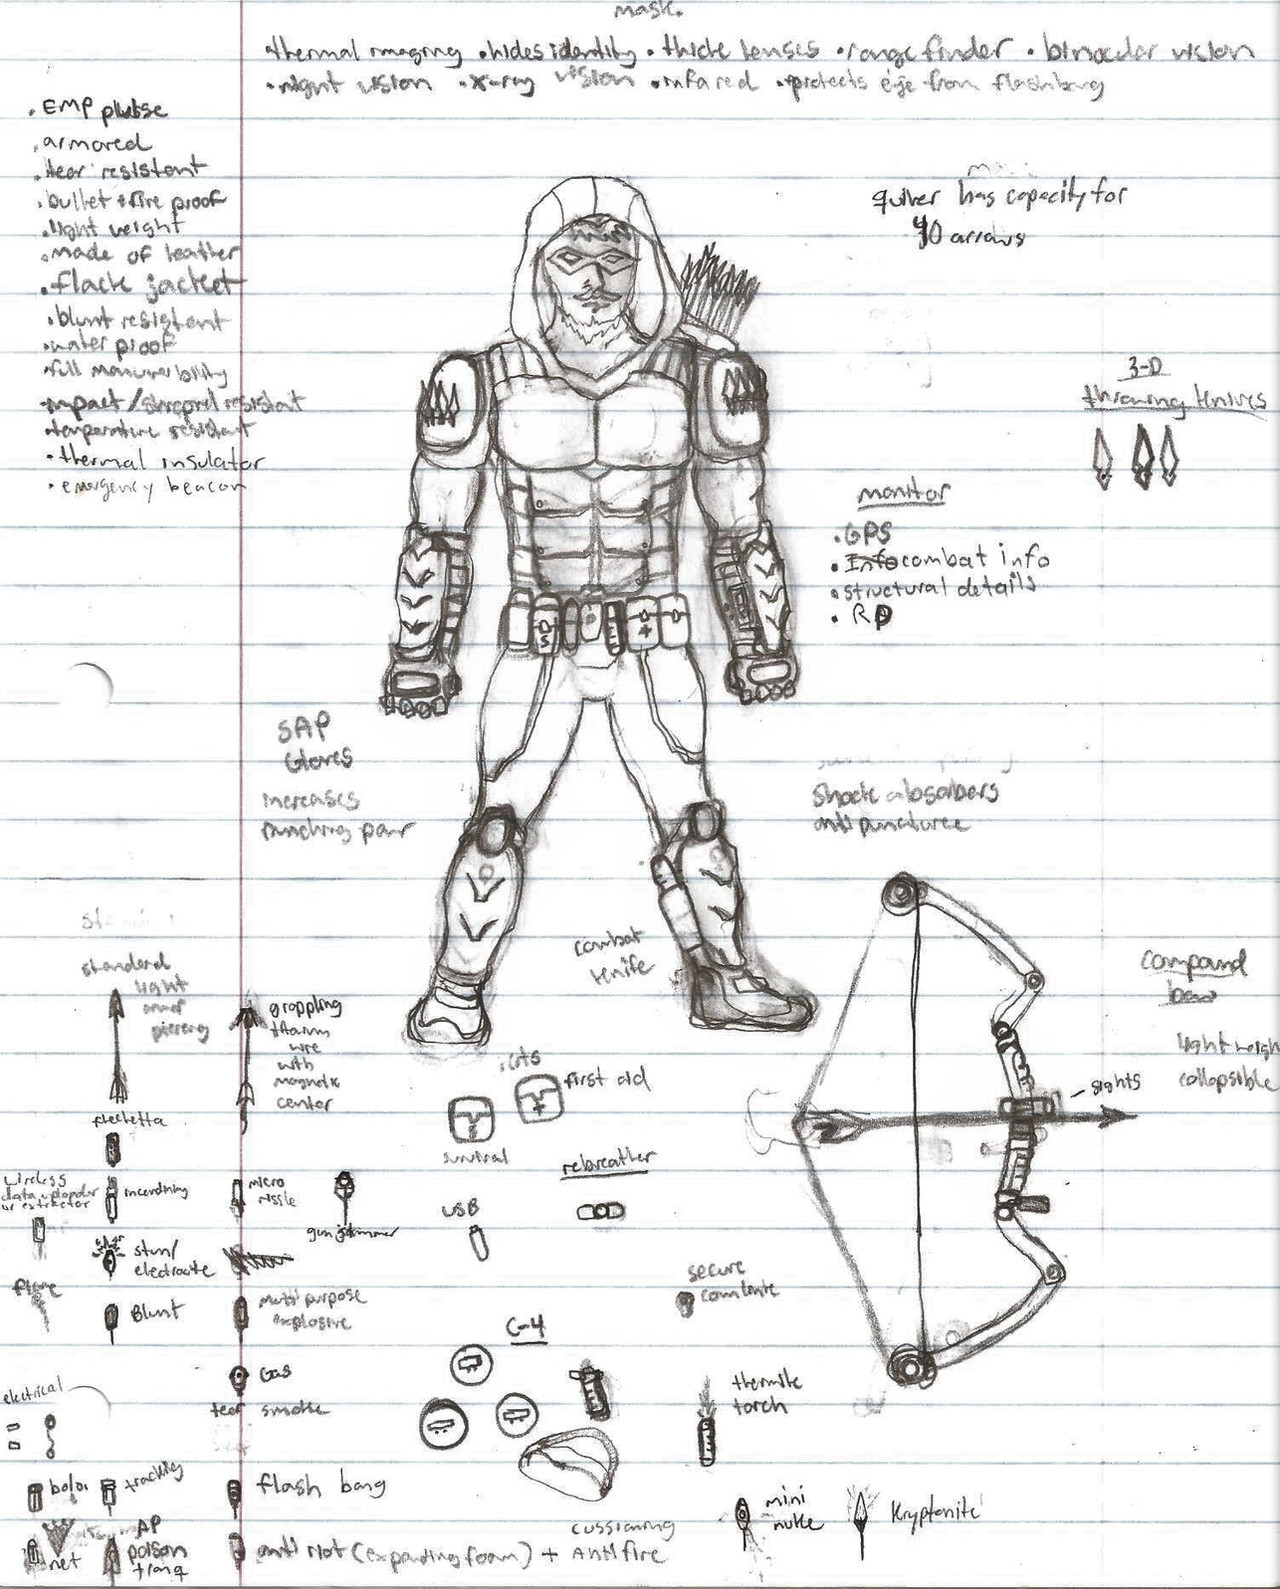 mask.
thermal imaging • hides identity • thick lenses • range finder • binocular vision
• night vision • x-ray vision • infared • protects eye from flashbang
• EMP plubse
• armored
• tear resistant
• bullet + fire proof
• light weight
• made of leather
• flack jacket
• blunt resistant
• water proof
full manuverbility
• impact / shrapnel resistant
• temperature resistant
• thermal insulator
• emergency beacon
quiver has capacity for
40 arrows
3-D
throwing knives
monitor
• GPS
• Info combat info
• structural details
• RD
SAP
Gloves
increases
punching pour
shock absorbers
anti puncturee
combat
knife
standard
light
armor
piercing
grappling
titanium
wire
with
magnetic
center
flechetta
compound
bow
light weigh
collapsible
sights
kits
first aid
survival
rebreather
wireless
data uploader
or extractor
incendinary
micro
missle
gun jammer
USB
stun/
electrocute
flare
Blunt
multi purpose
explosive
secure
comlink
C-4
Gas
tear smoke
electrical
thermite
torch
bolos
tracking
flash bang
net
AP
poison
tranq
anti riot (expanding foam) + Antifire
cussioning
mini
nuke
Kryptonite